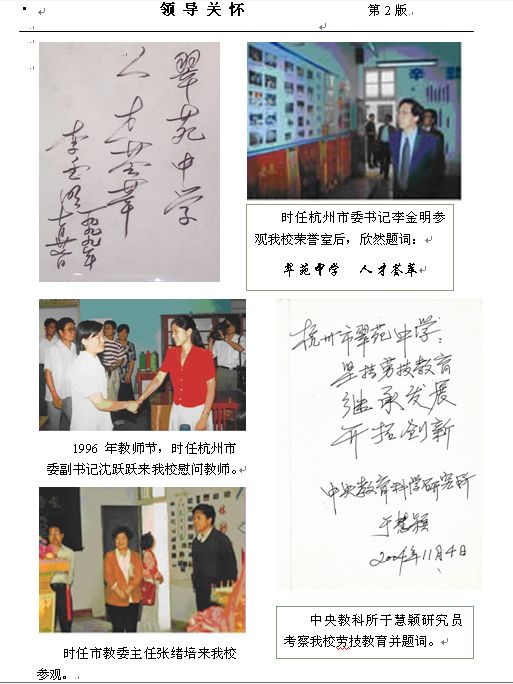 领 导 关 怀
第 2 版
翠苑中学
人才荟萃
李金明
一九九九年
时任杭州市委书记李金明参
观我校荣誉室后，欣然题词：
翠苑中学 人才荟萃
1996 年教师节，时任杭州市
委副书记沈跃跃来我校慰问教师。
杭州市翠苑中学：
坚持劳技教育
继承发展
开拓创新
中央教育科学研究所
于慧颖
2004年11月4日
时任市教委主任张绪培来我校
参观。
中央教科所于慧颖研究员
考察我校劳技教育并题词。